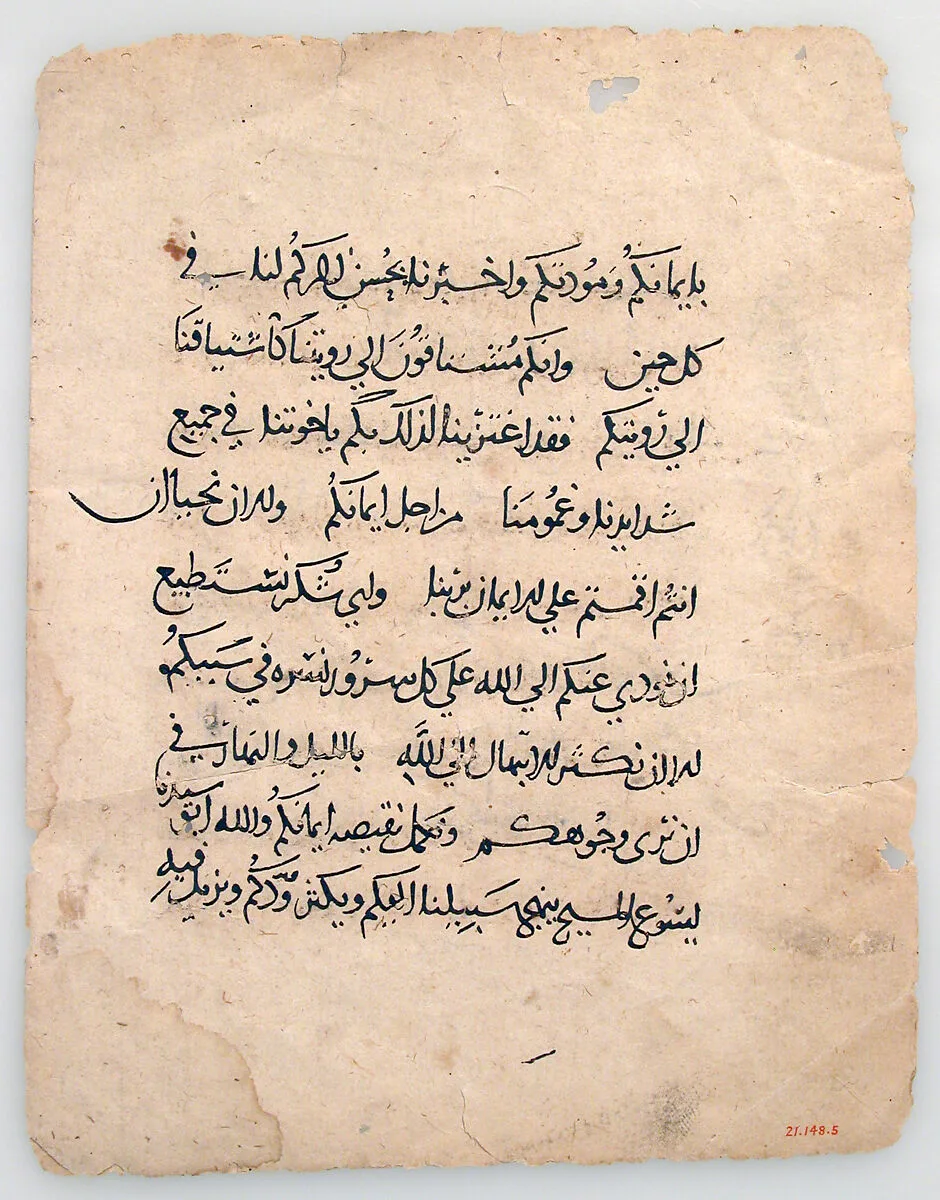 بايمانكم ومودتكم واخبرنا بحسن ذكركم لنا في
كل حين وانكم مشتاقون الي رويتنا كاشتياقنا
الي رويتكم فقد اعتزينا لذلك بكم ياخوتنا في جميع
شدايدنا وغمومنا من اجل ايمانكم والان نحيا ان
انتم اقمتم علي الايمان بربنا واي شكر نستطيع
ان نودي عنكم الي الله علي كل سرور نسره في سببكم
الا ان نكثر الابتهال الي الله بالليل والنهار في
ان نرى وجوهكم ونكمل نقيصه ايمانكم والله ابونا وسيدنا
يسوع المسيح ينهج سبيلنا اليكم ويكثر ودكم ويزيد فيه
21.148.5